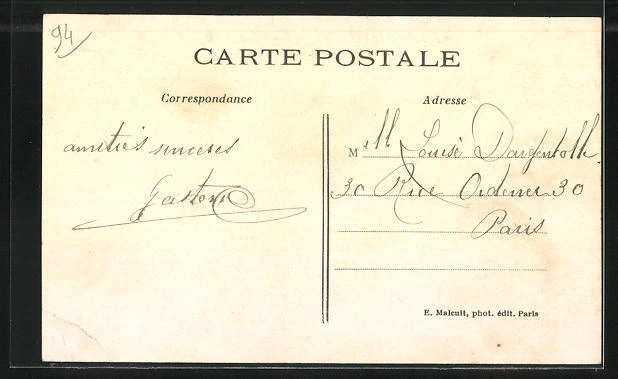 94
CARTE POSTALE
Correspondance
Adresse
amitiés sinceres
Gaston
M Louise
30 Rue Ordener 30
Paris
E. Malcuit, phot. édit. Paris